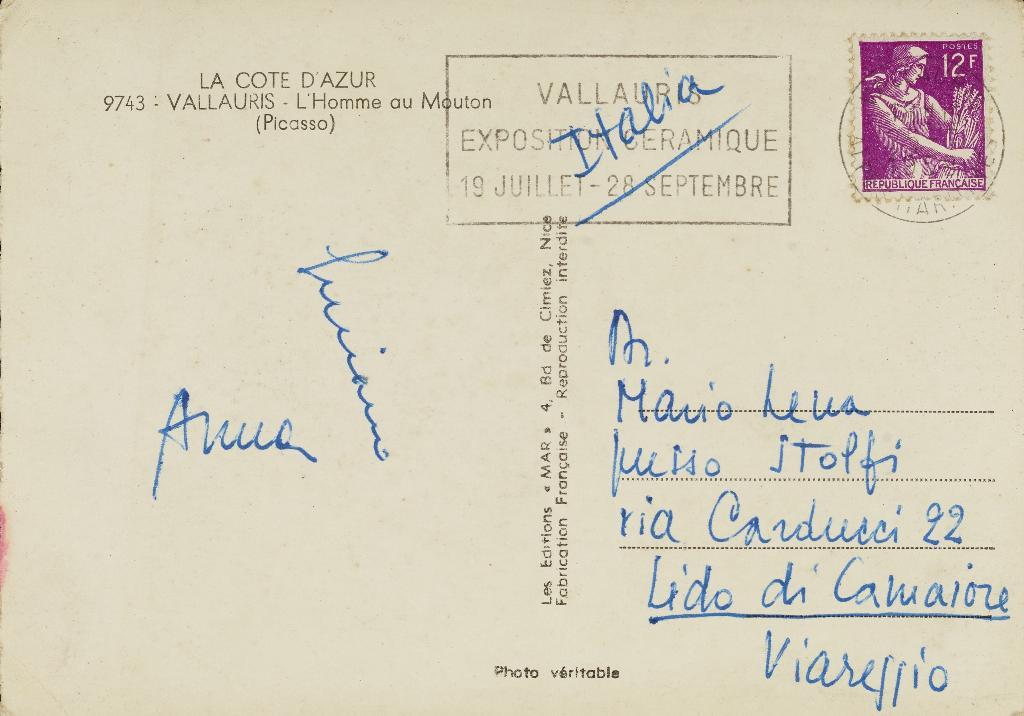 LA COTE D'AZUR
9743 : VALLAURIS - L'Homme au Mouton
(Picasso)
VALLAURIS
EXPOSITION CERAMIQUE
19 JUILLET - 28 SEPTEMBRE
Italia
POSTES
12F
REPUBLIQUE FRANÇAISE
Luciani
Anna
Les Editions « MAR » 4, Bd de Cimiez, Nice
Fabrication Française - Reproduction interdite
Dr.
Mario Lena
presso Stolfi
via Carducci 22
Lido di Camaiore
Viareggio
Photo véritable